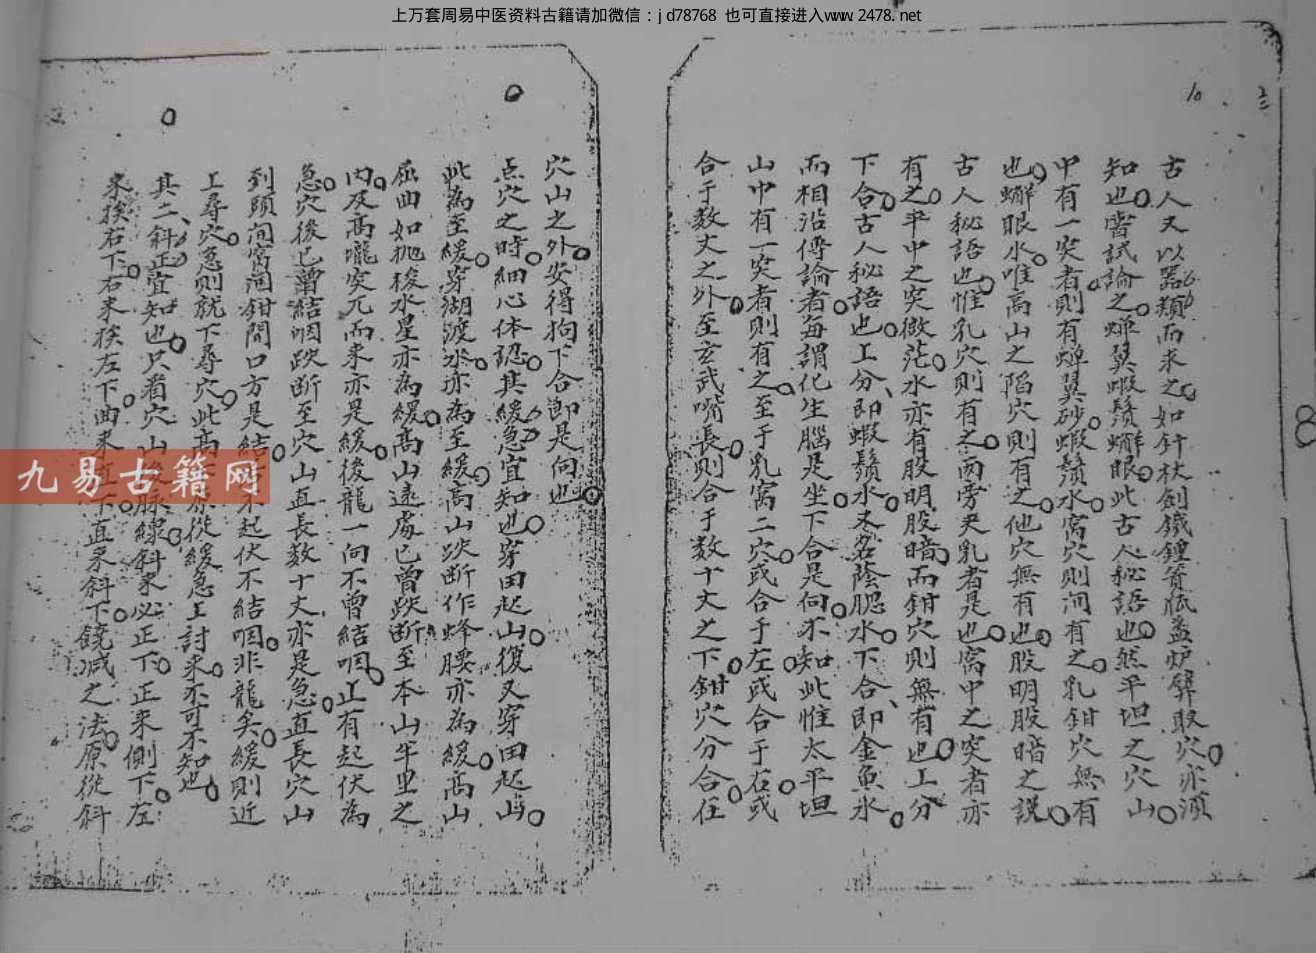 上万套周易中医资料古籍请加微信：jd78768 也可直接进入www.2478.net
10
三
古人又以器類而求之如針杖劍鐵鍾簷瓶盞炉劈取穴亦須
知也嘗試論之蟬翼蝦鬚蠏眼此古人秘語也然平坦之穴山
中有一突者則有蟬翼砂蝦鬚水窩穴則间有之乳鉗穴無有
也蠏眼水唯高山之陷穴則有之他穴無有也股明股暗之説
古人秘語也惟乳穴則有之両旁夹乳者是也窩中之突者亦
有之平中之突微茫水亦有股明股暗而鉗穴則無有也上分
下合古人秘語也上分即蝦鬚水又名蔭腮水下合即金魚水
而相沿傳論者每謂化生腦是坐下合是向不知此惟太平坦
山中有一突者則有之至于乳窩二穴或合于左或合于右或
合于数丈之外至玄武嘴長則合于数十丈之下鉗穴分合在
穴山之外安得拘下合即是向也
点穴之時細心体認其緩急宜知也穿田起山復又穿田起山
此為至緩穿湖渡水亦為至緩高山跌断作蜂腰亦為緩高山
屈曲如抛梭水星亦為緩高山遠處已曾跌断至本山半里之
内及高壠突兀而来亦是緩後龍一向不曾結咽止有起伏為
急穴後已曾結咽跌断至穴山直長数十丈亦是急直長穴山
到頭间窩间鉗開口方是結不起伏不結咽非龍矣緩則近
上尋穴急則就下尋穴此高原從緩急上討来不可不知也
其二斜正宜知也只看穴山後脉線斜来必正下正来側下左
来挨右下右来挨左下曲来直下直来斜下饒减之法原從斜
九易古籍网